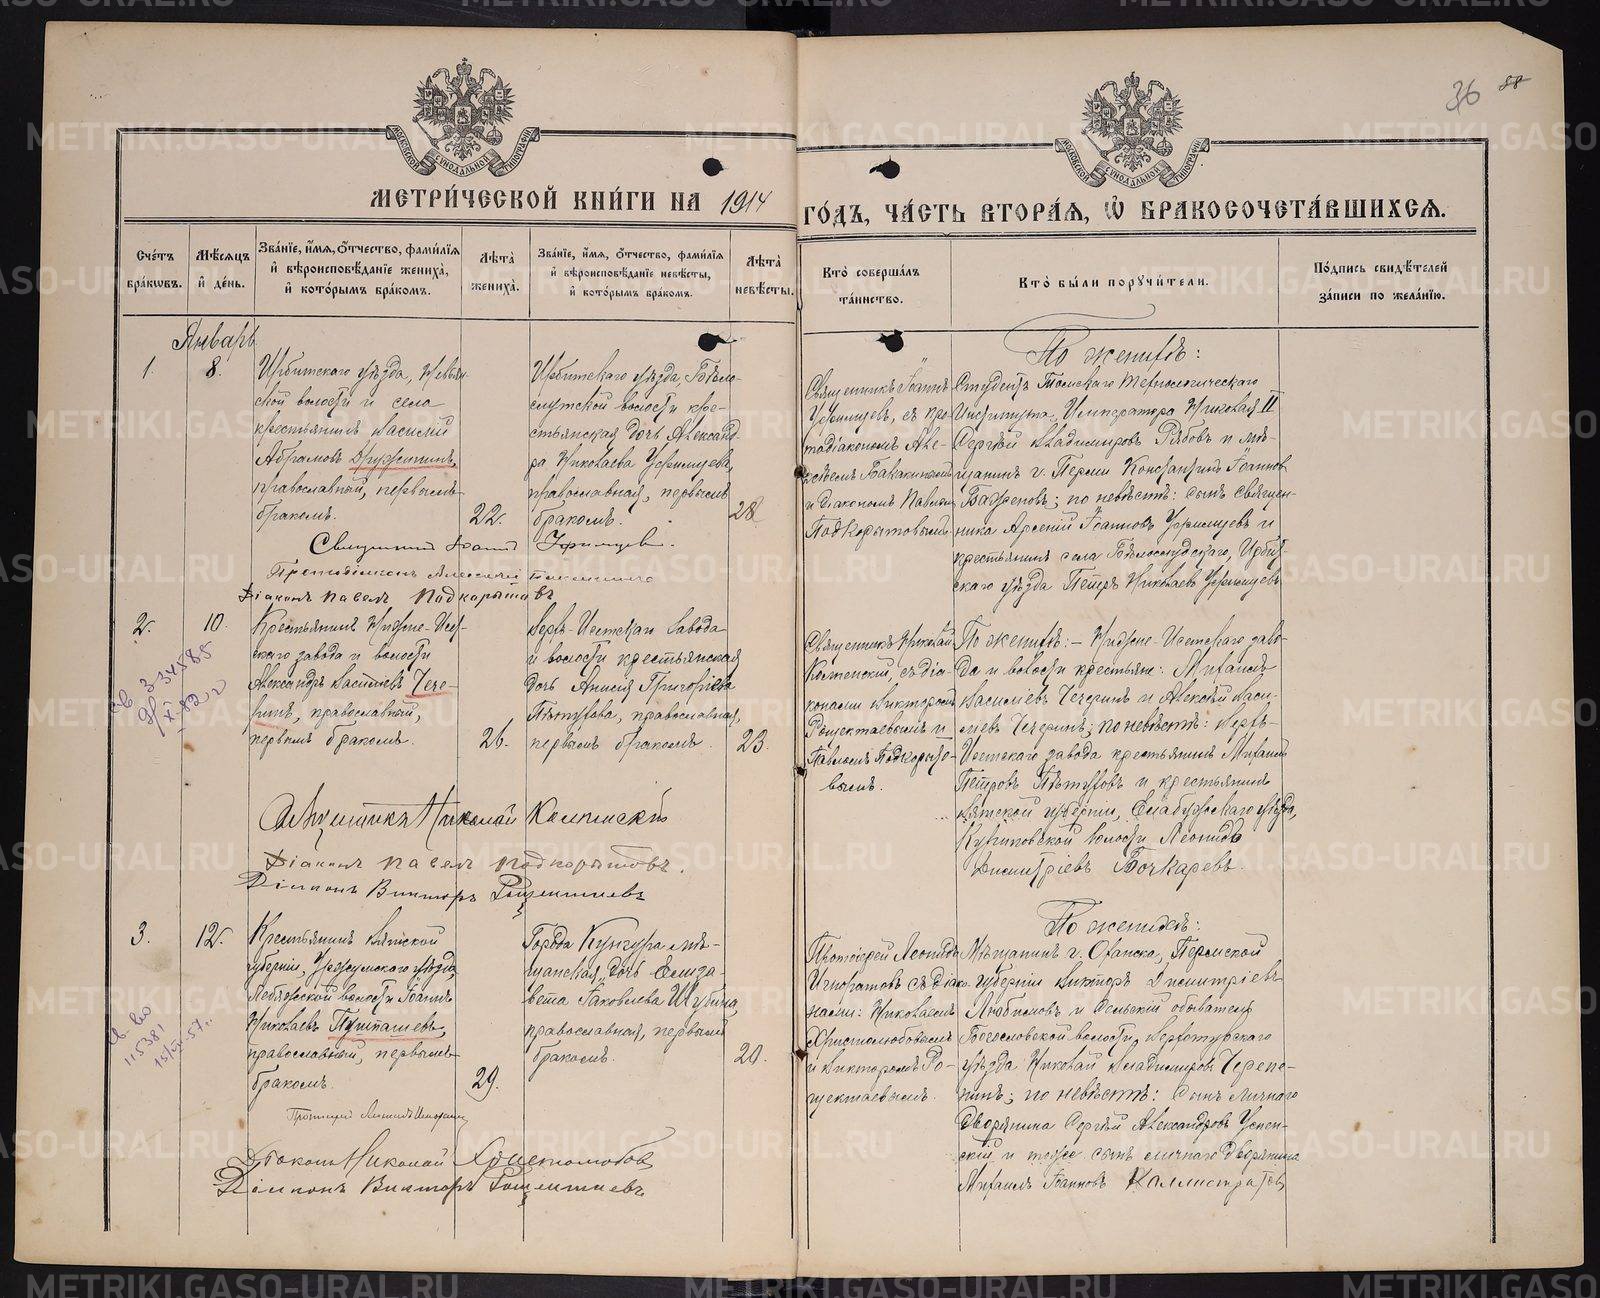 36 88
МЕТРИ́ЧЕСКОЙ КНИ́ГИ НА 1914 ГО́ДЪ, ЧА́СТЬ ВТОРА́Я, Ѽ БРАКОСОЧЕТА́ВШИХСЯ.
Сче́тъ бра́кѡвъ.
Мѣ́сяцъ и́ де́нь.
Зва́нїе, и́мя, ѻ́тчество, фами́лїя и́ вѣроисповѣ́данїе жениха̀, и́ кото́рымъ бра́комъ.
Лѣ́та̀ жениха̀.
Зва́нїе, и́мя, ѻ́тчество, фами́лїя и́ вѣроисповѣ́данїе невѣ́сты, и́ кото́рымъ бра́комъ.
Лѣ́та̀ невѣ́сты.
Кто̀ соверша́лъ та́инство.
Кто̀ бы́ли порꙋчи́тели.
По́дпись свидѣ́телей за́писи по жела́нїю.
Январь
1.
8.
Ирбитскаго уѣзда, Невьян-
ской волости и села
крестьянинъ Василій
Абрамовъ Дружининъ,
православный, первымъ
бракомъ.
22.
Ирбитскаго уѣзда, Бѣло-
слудской волости кре-
стьянская дочь Александ-
ра Николаева Уфимцева,
православная, первымъ
бракомъ.
28
Священникъ Іоаннъ
Уфимцевъ, съ про-
тодіакономъ Але-
ксѣемъ
и діакономъ Павломъ
Подкорытовымъ
По женихѣ:
Студентъ Томскаго Технологическаго
Института Императора Николая II
Сергѣй Владиміровъ Рябовъ и мѣ-
щанинъ г. Перми Константинъ Іоанновъ
Баженовъ; по невѣстѣ: сынъ священ-
ника Арсеній Іоанновъ Уфимцевъ и
крестьянинъ села Бѣлослудскаго, Ирбит-
скаго уѣзда Петръ Николаевъ Уфимцевъ
Священникъ Іоаннъ Уфимцевъ.
Протодіаконъ Алексѣй
Діаконъ Павелъ Подкорытовъ
2.
10.
Крестьянинъ Нижне-Исет-
скаго завода и волости
Александръ Васильевъ Чече-
ринъ, православный,
первымъ бракомъ.
26.
Верх-Исетскаго завода
и волости крестьянская
дочь Анисія Григорьева
Пѣтухова, православная,
первымъ бракомъ.
23.
Священникъ Николай
съ діа-
конами Викторомъ
Рощектаевымъ и
Павломъ Подкорыто-
вымъ.
По женихѣ: - Нижне-Исетскаго заво-
да и волости крестьяне: Михаилъ
Васильевъ Чечеринъ и Алексѣй Васи-
льевъ Чечеринъ; по невѣстѣ: Верх-
Исетскаго завода крестьянинъ Михаилъ
Петровъ Пѣтуховъ и крестьянинъ
Вятской губерніи, Елабужскаго уѣзда,
волости Леонидъ
Дмитріевъ Бочкаревъ.
Священникъ Николай
Діаконъ Павелъ Подкорытовъ.
Діаконъ Викторъ Рощектаевъ
3.
12.
Крестьянинъ Вятской
губерніи, Уржумскаго уѣзда
Лебяжской волости Іоаннъ
Николаевъ Пушташевъ,
православный, первымъ
бракомъ.
29.
Города Кунгура мѣ-
щанская дочь Елиза-
вета Іаковлева Шубина,
православная, первымъ
бракомъ.
20.
Протоіерей Леонидъ
Игнатовъ съ діако-
нами: Николаемъ
Христолюбовымъ
и Викторомъ Ро-
щектаевымъ.
По женихѣ:
Мѣщанинъ г. Оханска, Пермской
губерніи Викторъ Дмитріевъ
Любимовъ и сельскій обыватель
Богословской волости, Верхотурскаго
уѣзда Николай Владиміровъ Черепа-
нинъ; по невѣстѣ: сынъ личнаго
дворянина Сергѣй Александровъ Успен-
скій и тоже сынъ личнаго дворянина
Михаилъ Іоанновъ Каллистратовъ
Протоіерей Леонидъ Игнатовъ
Діаконъ Николай Христолюбовъ
Діаконъ Викторъ Рощектаевъ
METRIKI.GASO-URAL.RU